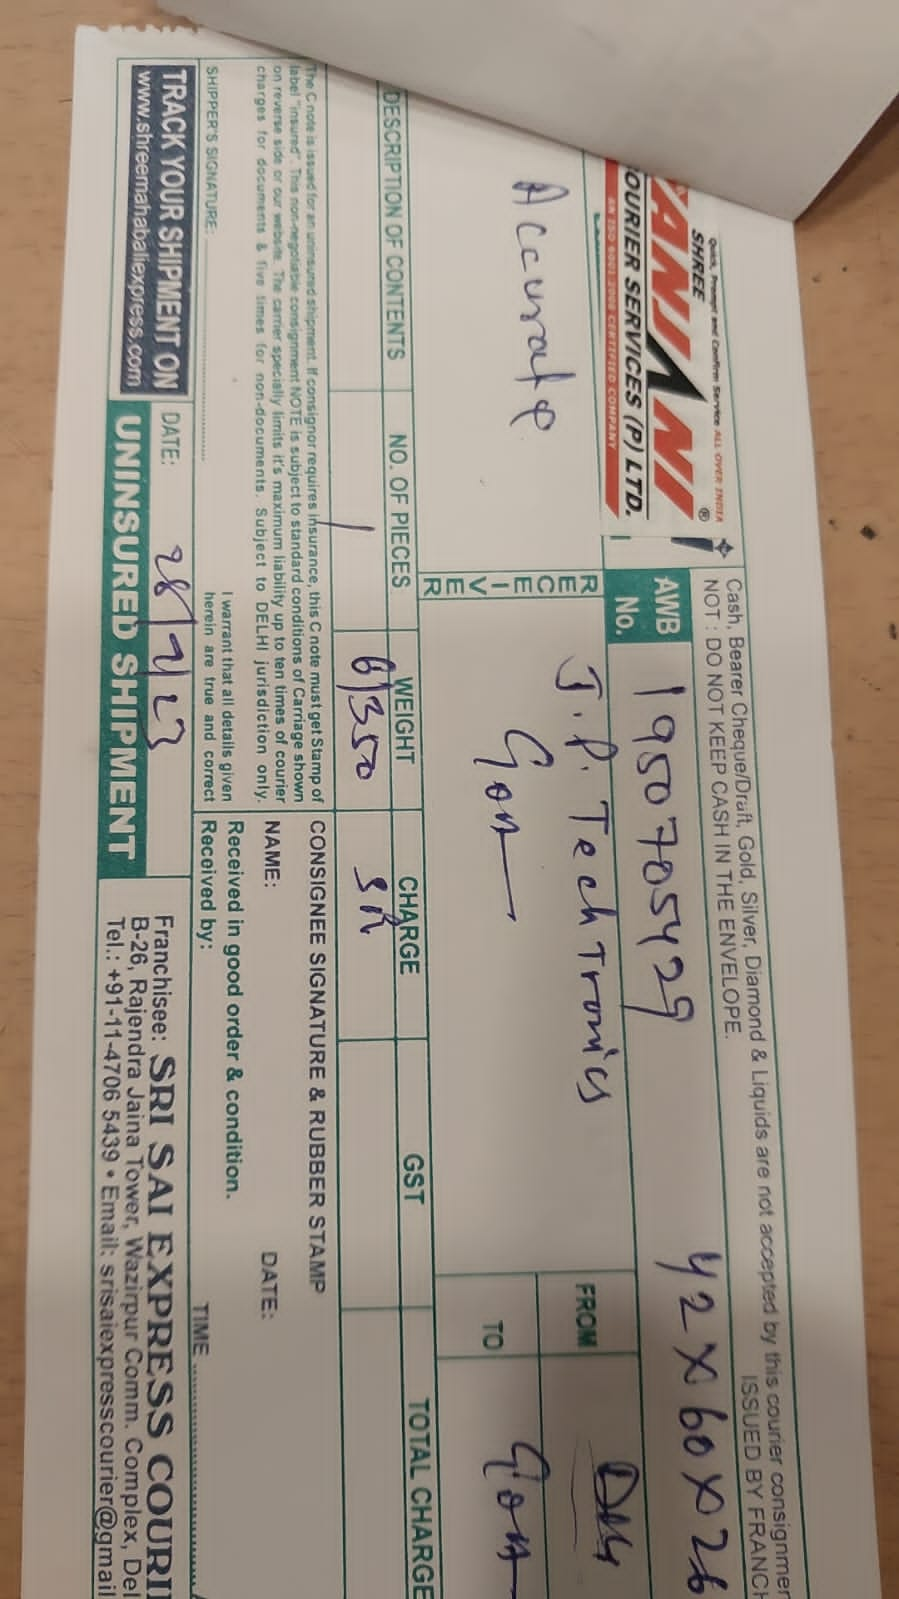 Quick, Prompt and Confirm Service ALL OVER INDIA
SHREE
ANJANI ®
COURIER SERVICES (P) LTD.
AN ISO 9001:2008 CERTIFIED COMPANY
Cash, Bearer Cheque/Draft, Gold, Silver, Diamond & Liquids are not accepted by this courier consignmen
NOT : DO NOT KEEP CASH IN THE ENVELOPE.
ISSUED BY FRANCH
AWB No. 1950705429
42 X 60 X 26
Accurate
RECEIVER
J.P. Tech Tronics
FROM
TO
DESCRIPTION OF CONTENTS NO. OF PIECES WEIGHT CHARGE GST TOTAL CHARGE
1 6/350
The C note is issued for an uninsured shipment. If consignor requires insurance, this C note must get Stamp of
label "insured". This non-negotiable consignment NOTE is subject to standard conditions of Carriage shown
on reverse side or our website. The carrier specially limits it's maximum liability up to ten times of courier
charges for documents & five times for non-documents. Subject to DELHI jurisdiction only.
SHIPPER'S SIGNATURE:
I warrant that all details given
herein are true and correct
CONSIGNEE SIGNATURE & RUBBER STAMP
NAME: DATE:
Received in good order & condition.
Received by: TIME
TRACK YOUR SHIPMENT ON
www.shreemahabaliexpress.com
DATE: 28/7/23
UNINSURED SHIPMENT
Franchisee: SRI SAI EXPRESS COURI
B-26, Rajendra Jaina Tower, Wazirpur Comm. Complex, Del
Tel.: +91-11-4706 5439 • Email: srisaiexpresscourier@gmail